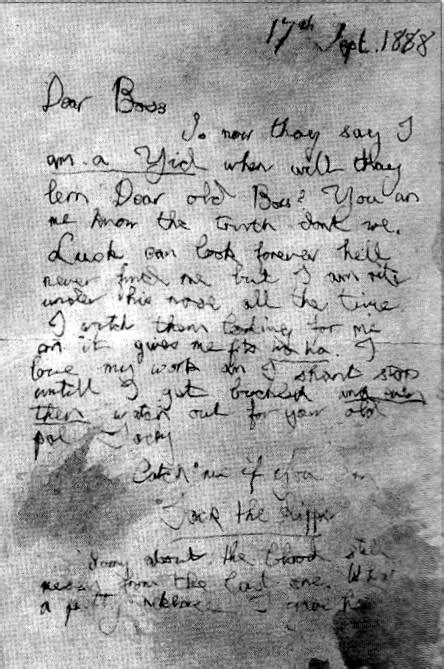 17th Sept. 1888
Dear Boss
So now they say I
am a Yid when will they
lern Dear old Boss? You an
me know the truth dont we.
Lusk can look forever hell
never find me but I am rite
under his nose all the time.
I watch them looking for me
an it gives me fits ha ha. I
love my work an I shant stop
untill I get buckled and even
then watch out for your old
pal Jacky
Catch me if you
Jack the Ripper
Sorry about the blood still
messy from the last one. What
a pretty necklace I gave her